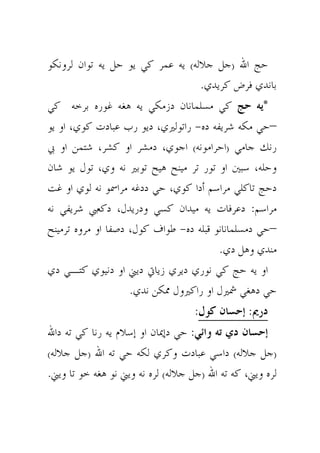 حج الله (جل جلاله) په عمر کي يو حل په توان لرونکو
باندي فرض کړيدي.
*په حج کي مسلمانان دزمکي په هغه غوره برخه کي
–چي مکه شريفه ده- راټوليږي، ديو رب عبادت کوي، او يو
رنګ جامي (احرامونه) اغوي، دمشر او کشر، شتمن او بې
وحله، سپين او تور تر مينځ هيڅ توپير نه وي، ټول يو شان
دحج ټاکلي مراسم أدا کوي، چي ددغه مراسمو نه لوي او غټ
مراسم: دعرفات په ميدان کښي ودريدل، دکعبي شريفي نه
–چي دمسلمانانو قبله ده- طواف کول، دصفا او مروه ترمينځ
مندي وهل دي.
او په حج کي نوري ډيري زياتې ديني او دنيوي ګټي دي
چي دهغي شميرل او راګيرول ممکن ندي.
دريم: إحسان کول:
إحسان دي ته وائي: چي دإيمان او إسلام په رڼا کي ته دالله
(جل جلاله) داسي عبادت وکړي لکه چي ته الله (جل جلاله)
لره ويني، که ته الله (جل جلاله) لره نه ويني نو هغه خو تا ويني.